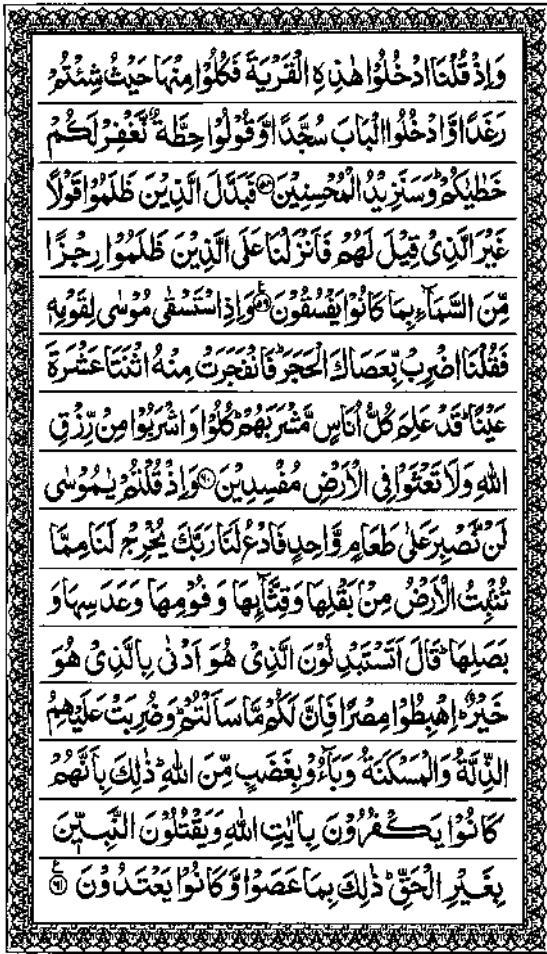 وَاِذْ قُلْنَا ادْخُلُوْا هٰذِهِ الْقَرْيَةَ فَكُلُوْا مِنْهَا حَيْثُ شِئْتُمْ
رَغَدًا وَّادْخُلُوا الْبَابَ سُجَّدًا وَّقُوْلُوْا حِطَّةٌ نَّغْفِرْ لَكُمْ
خَطٰيٰكُمْ ؕ وَسَنَزِيْدُ الْمُحْسِنِيْنَ ﴿۵۸﴾ فَبَدَّلَ الَّذِيْنَ ظَلَمُوْا قَوْلًا
غَيْرَ الَّذِىْ قِيْلَ لَهُمْ فَاَنْزَلْنَا عَلَى الَّذِيْنَ ظَلَمُوْا رِجْزًا
مِّنَ السَّمَآءِ بِمَا كَانُوْا يَفْسُقُوْنَ ﴿۵۹﴾ وَاِذِ اسْتَسْقٰى مُوْسٰى لِقَوْمِهٖ
فَقُلْنَا اضْرِبْ بِّعَصَاكَ الْحَجَرَ ؕ فَانْفَجَرَتْ مِنْهُ اثْنَتَا عَشْرَةَ
عَيْنًا ؕ قَدْ عَلِمَ كُلُّ اُنَاسٍ مَّشْرَبَهُمْ ؕ كُلُوْا وَاشْرَبُوْا مِنْ رِّزْقِ
اللّٰهِ وَلَا تَعْثَوْا فِى الْاَرْضِ مُفْسِدِيْنَ ﴿۶۰﴾ وَاِذْ قُلْتُمْ يٰمُوْسٰى
لَنْ نَّصْبِرَ عَلٰى طَعَامٍ وَّاحِدٍ فَادْعُ لَنَا رَبَّكَ يُخْرِجْ لَنَا مِمَّا
تُنْۢبِتُ الْاَرْضُ مِنْۢ بَقْلِهَا وَقِثَّآئِهَا وَفُوْمِهَا وَعَدَسِهَا وَ
بَصَلِهَا ؕ قَالَ اَتَسْتَبْدِلُوْنَ الَّذِىْ هُوَ اَدْنٰى بِالَّذِىْ هُوَ
خَيْرٌ ؕ اِهْبِطُوْا مِصْرًا فَاِنَّ لَكُمْ مَّا سَاَلْتُمْ ؕ وَضُرِبَتْ عَلَيْهِمُ
الذِّلَّةُ وَالْمَسْكَنَةُ وَبَآءُوْ بِغَضَبٍ مِّنَ اللّٰهِ ؕ ذٰلِكَ بِاَنَّهُمْ
كَانُوْا يَكْفُرُوْنَ بِاٰيٰتِ اللّٰهِ وَيَقْتُلُوْنَ النَّبِيّٖنَ
بِغَيْرِ الْحَقِّ ؕ ذٰلِكَ بِمَا عَصَوْا وَّكَانُوْا يَعْتَدُوْنَ ﴿۶۱﴾ ع